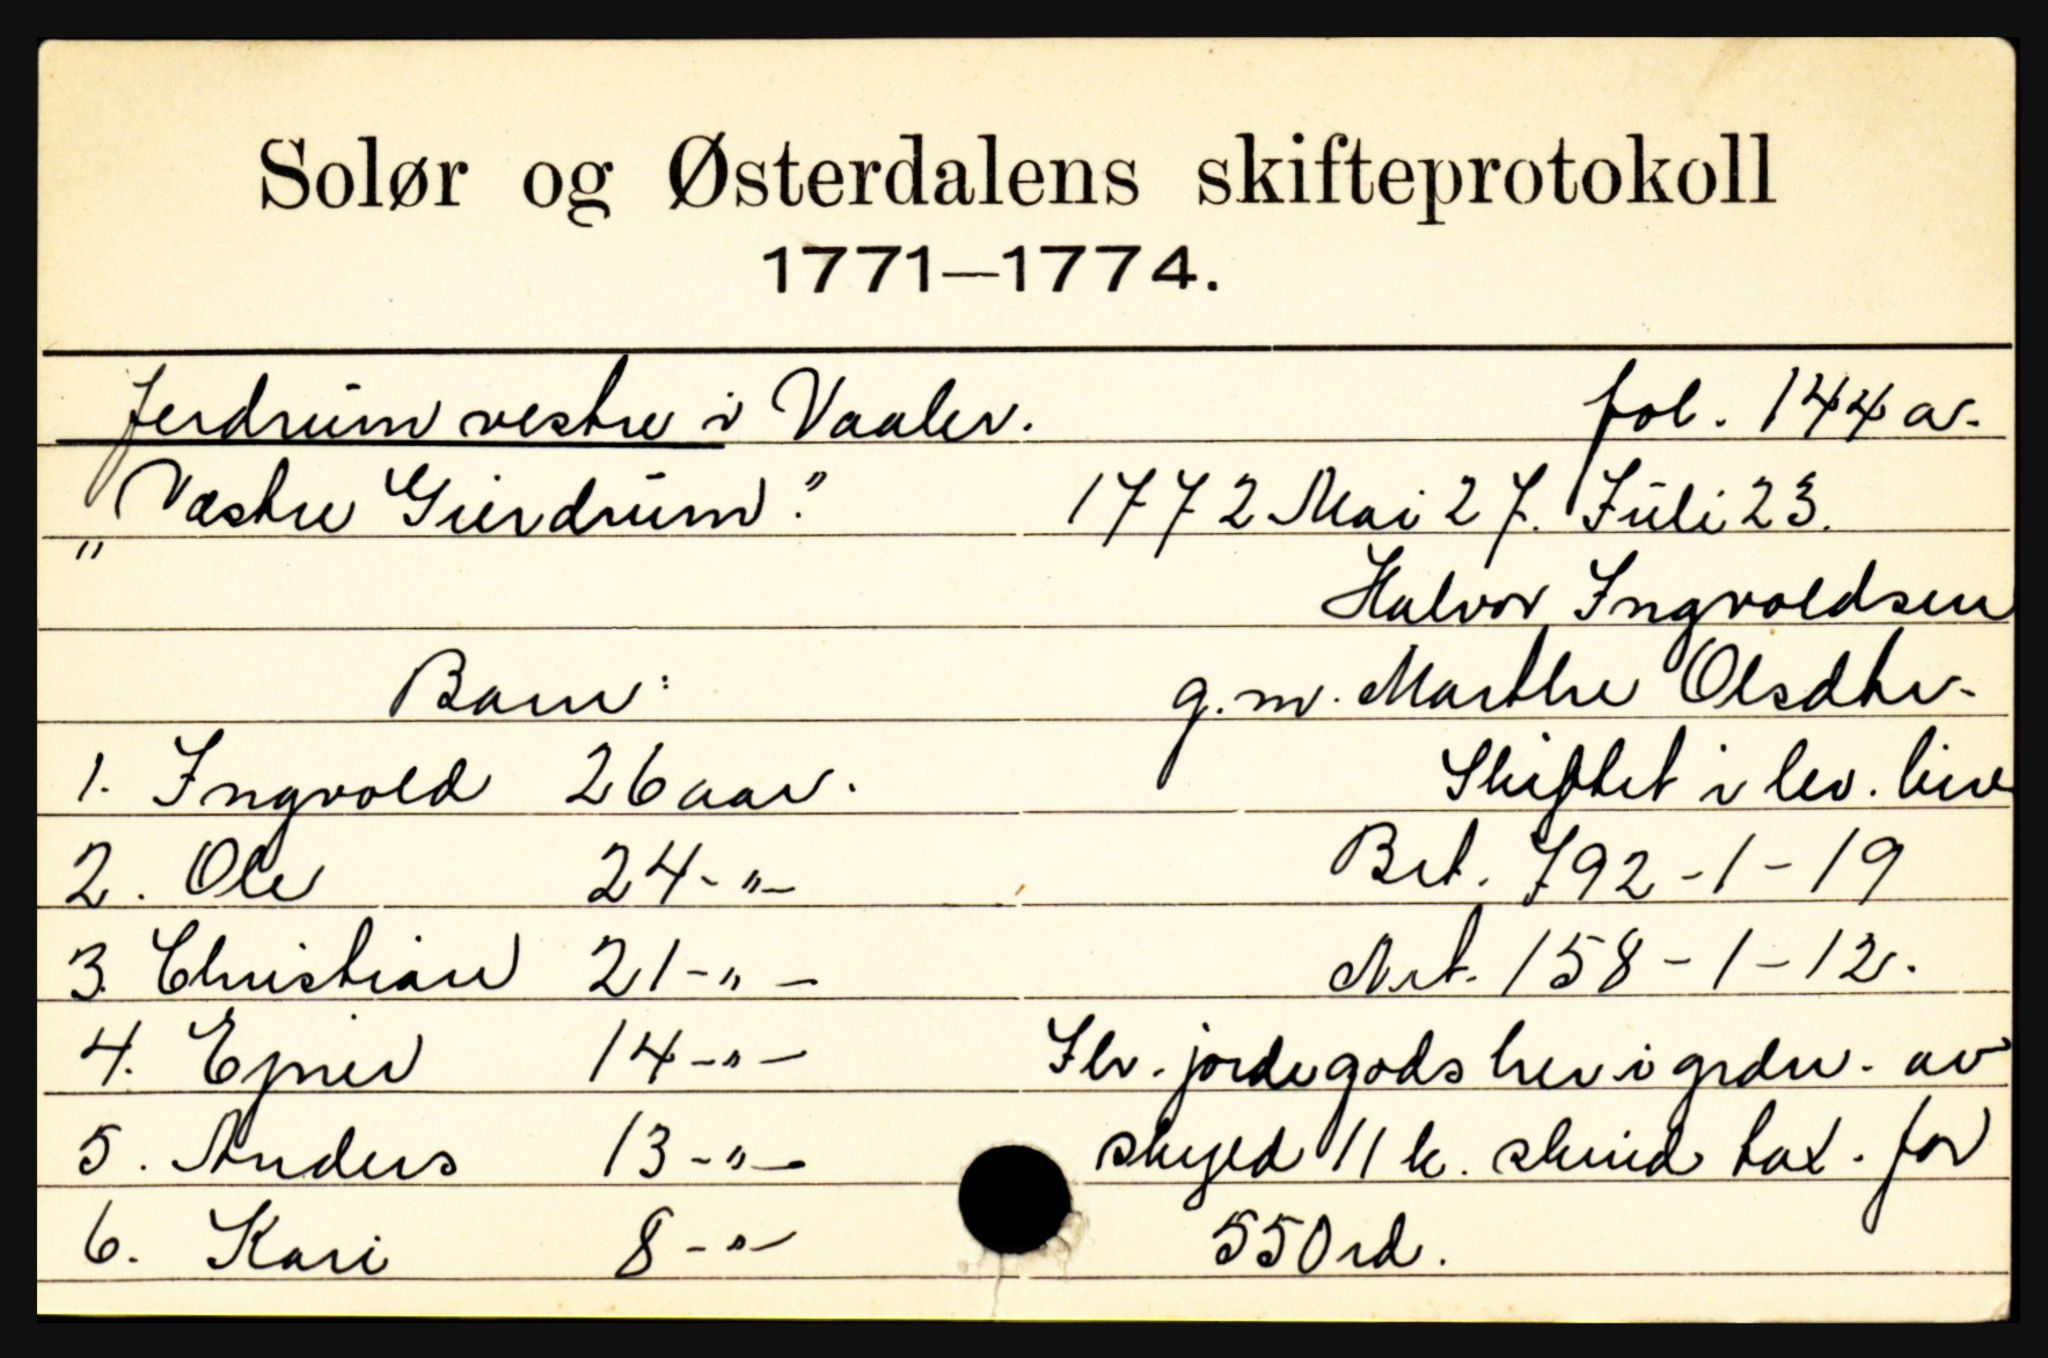 Solør og Østerdalens skifteprotokoll
1771—1774.
Jerdrum vestre i Vaaler. fol. 144 a.
"Vestre Gierdrum". 1772 Mai 27. Juli 23.
Halvor Ingvoldsen
Barn: g.m. Marthe Olsdtr.
1. Ingvold 26 aar. Skiftet i lev. live
2. Ole 24 - " - Brt. 792 - 1 - 19
3. Christian 21 - " - Nrt. 158 - 1 - 12.
4. Ejner 14 - " - Flr. jordegods her i grdn. av
5. Anders 13 - " - skyld 11 k. skind tax. for
6. Kari 8 - " - 550 rd.